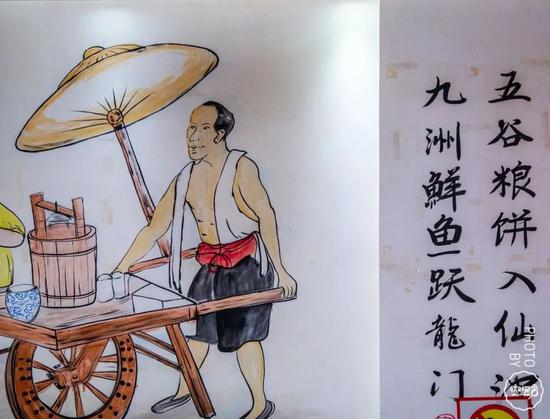 五谷粮饼入仙
九洲鮮鱼跃龍门
PHOTO BY